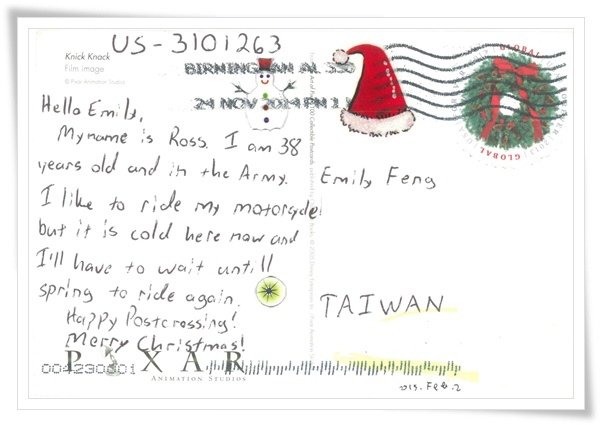 US-3101263
Knick Knack
Film image
© Pixar Animation Studios
BIRMINGHAM AL 350
24 NOV 2014 PM 1
GLOBAL
GLOBAL
Hello Emily,
My name is Ross. I am 38
years old and in the Army.
I like to ride my motorcycle
but it is cold here now and
I'll have to wait untill
spring to ride again.
Happy Postcrossing!
Merry Christmas!
Emily Feng
TAIWAN
PIXAR
ANIMATION STUDIOS
004230001